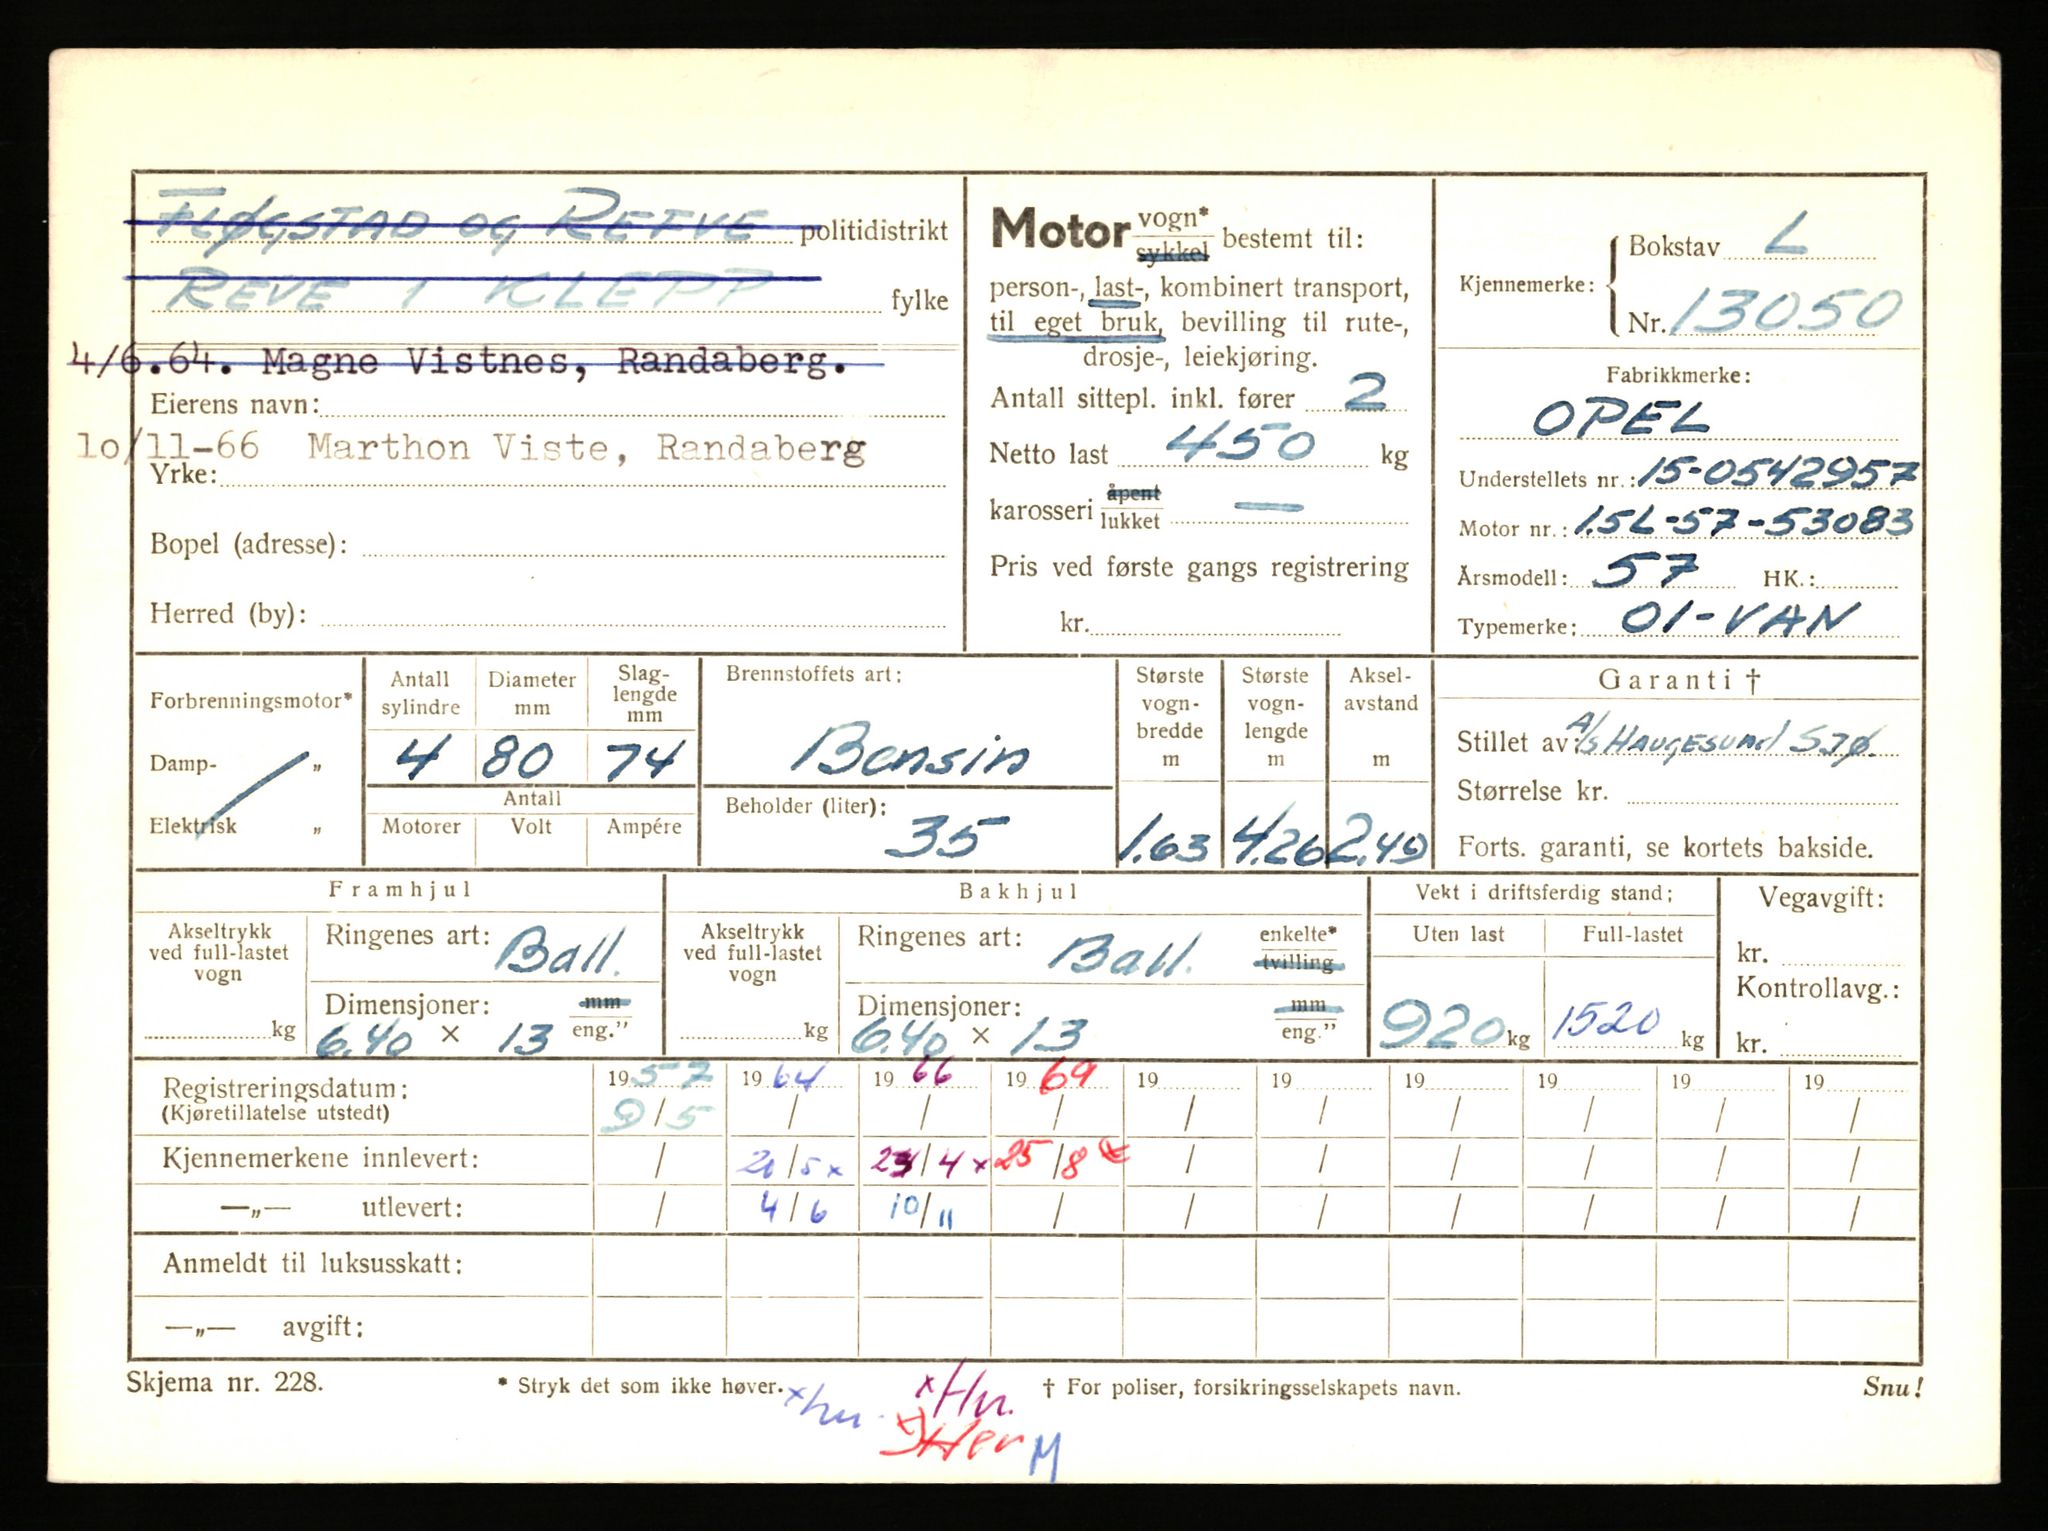 FLØGSTAD OG REFVE politidistrikt
REVE I KLEPP fylke
4/6.64. Magne Vistnes, Randaberg.
Eierens navn:
10/11-66 Marthon Viste, Randaberg
Yrke:
Bopel (adresse):
Herred (by):
Motor vogn* sykkel bestemt til:
person-, last-, kombinert transport,
til eget bruk, bevilling til rute-,
drosje-, leiekjøring.
Antall sittepl. inkl. fører 2
Netto last 450 kg
karosseri åpent lukket —
Pris ved første gangs registrering
kr.
Kjennemerke: Bokstav L
Nr. 13050
Fabrikkmerke:
OPEL
Understellets nr.: 15-0542957
Motor nr.: 1.5L-57-53083
Årsmodell: 57 HK.:
Typemerke: 01-VAN
Forbrenningsmotor*
Damp- „
Elektrisk „
Antall sylindre
4
Diameter mm
80
Slag-lengde mm
74
Antall
Motorer Volt Ampére
Brennstoffets art:
Bensin
Beholder (liter):
35
Største vogn-bredde m
1.63
Største vogn-lengde m
4.26
Aksel-avstand m
2.49
Garanti †
Stillet av A/S HAUGESUND SJØ.
Størrelse kr.
Forts. garanti, se kortets bakside.
Framhjul
Akseltrykk ved full-lastet vogn
kg
Ringenes art: Ball.
Dimensjoner: mm
6.40 × 13 eng.”
Bakhjul
Akseltrykk ved full-lastet vogn
kg
Ringenes art: Ball. enkelte* tvilling
Dimensjoner: mm
6.40 × 13 eng.”
Vekt i driftsferdig stand;
Uten last
920 kg
Full-lastet
1520 kg
Vegavgift:
kr.
Kontrollavg.:
kr.
Registreringsdatum: 1957 1964 1966 1969 19 19 19 19 19 19
(Kjøretillatelse utstedt) 9/5 / / / / / / / / /
Kjennemerkene innlevert: / 20/5 x 23/4 x 25/8 / / / / / /
—„— utlevert: / 4/6 10/11 / / / / / / /
Anmeldt til luksusskatt:
—„— avgift:
Skjema nr. 228. * Stryk det som ikke høver. † For poliser, forsikringsselskapets navn. Snu!
x hn. x Hn.
Her M